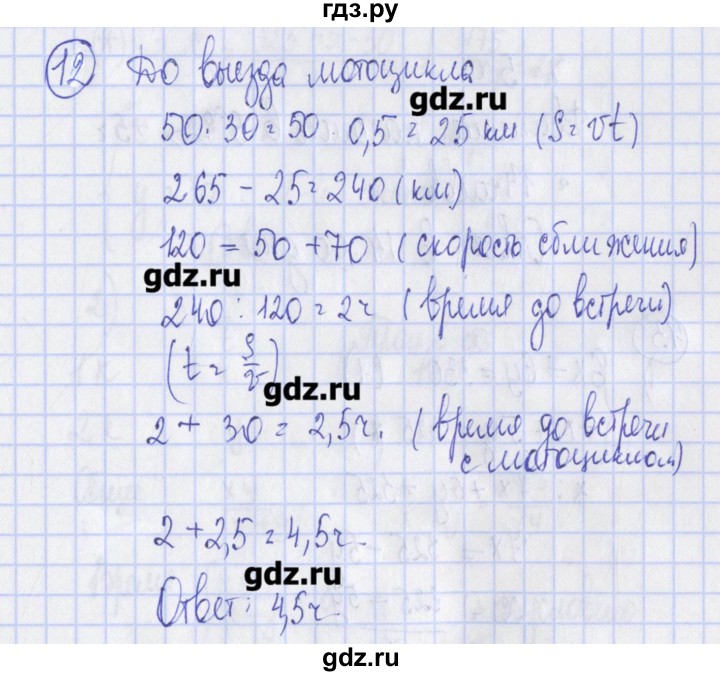 гдз.ру
12 До выезда мотоцикла
gdz.ru
50 · 30 = 50 · 0,5 = 25 км (S = vt)
265 - 25 = 240 (км)
120 = 50 + 70 (скорость сближения)
gdz.ru
240 : 120 = 2ч (время до встречи)
(t = S/v)
gdz.ru
2 + 30 = 2,5ч. (время до встречи
с мотоциклом)
2 + 2,5 = 4,5ч
gdz.ru
Ответ: 4,5ч
gdz.ru